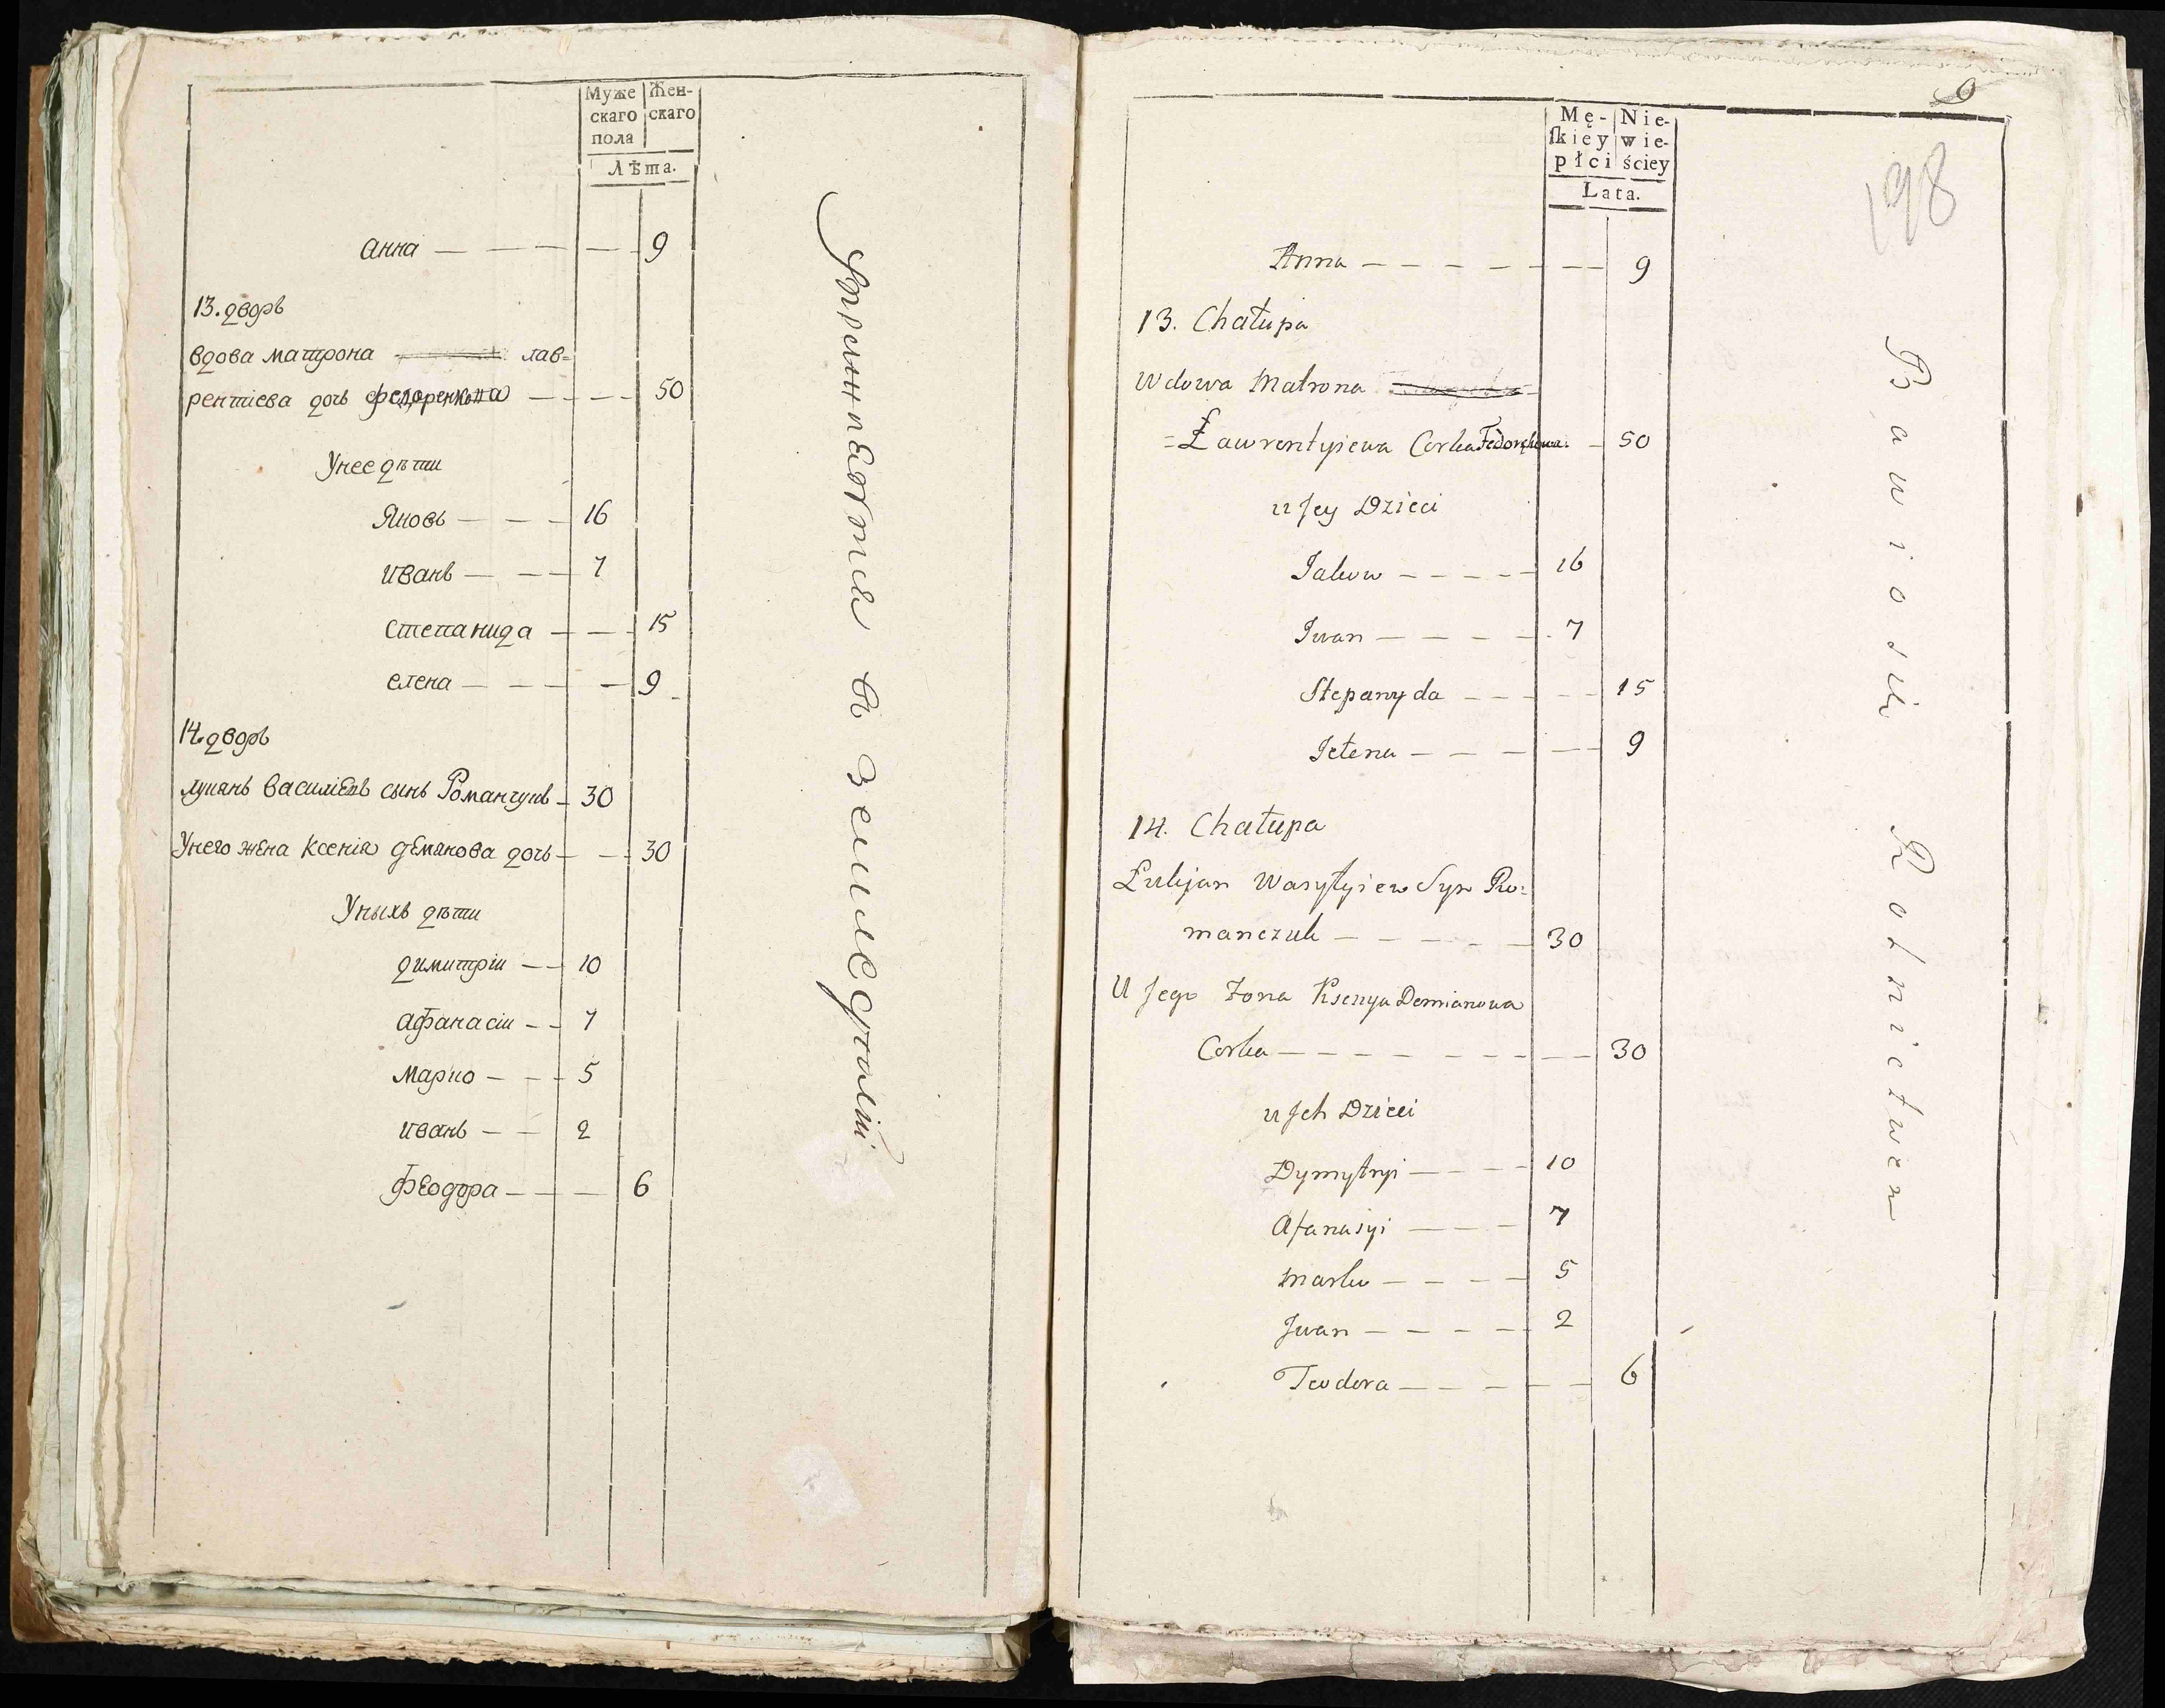 Муже
скаго
пола
Жен-
скаго
Лѣта.
анна — — — — — 9
13. дворъ
вдова матрона лав=
рентіева дочь федоренкова — — — — 50
Унее дѣти
Яковъ — — — 16
иванъ — — — 7
степанида — — — 15
елена — — — — 9
14. дворъ
лукянъ василіевъ сынъ Романчукъ — 30
Унего жена ксенія демянова дочь — — — 30
Уныхъ дѣти
димитрій — — 10
афанасій — — 7
марко — — — 5
иванъ — — 2
феодора — — — 6
упражняются въ земледѣліи
9
198
Mę-
ſkiey
płci
Nie-
wie-
ściey
Lata.
Anna — — — — — — — 9
13. Chałupa
Wdowa Matrona
=Ławrentyiewa Corka Fedorękowa. — 50
u Jey Dzieci
Jakow — — — — — 16
Iwan — — — — — 7
Stepanyda — — — — — 15
Jełena — — — — — — 9
14. Chałupa
Łukjan Wasylyiew Syn Ro=
manczuk — — — — — 30
U Jego Żona Ksenya Demianowa
Corka — — — — — — — — — 30
u Jch Dzieci
Dymytryi — — — — 10
Afanasyi — — — 7
Marko — — — — 5
Jwan — — — — — 2
Teodora — — — — — 6
Bawiosie Rolnictwem